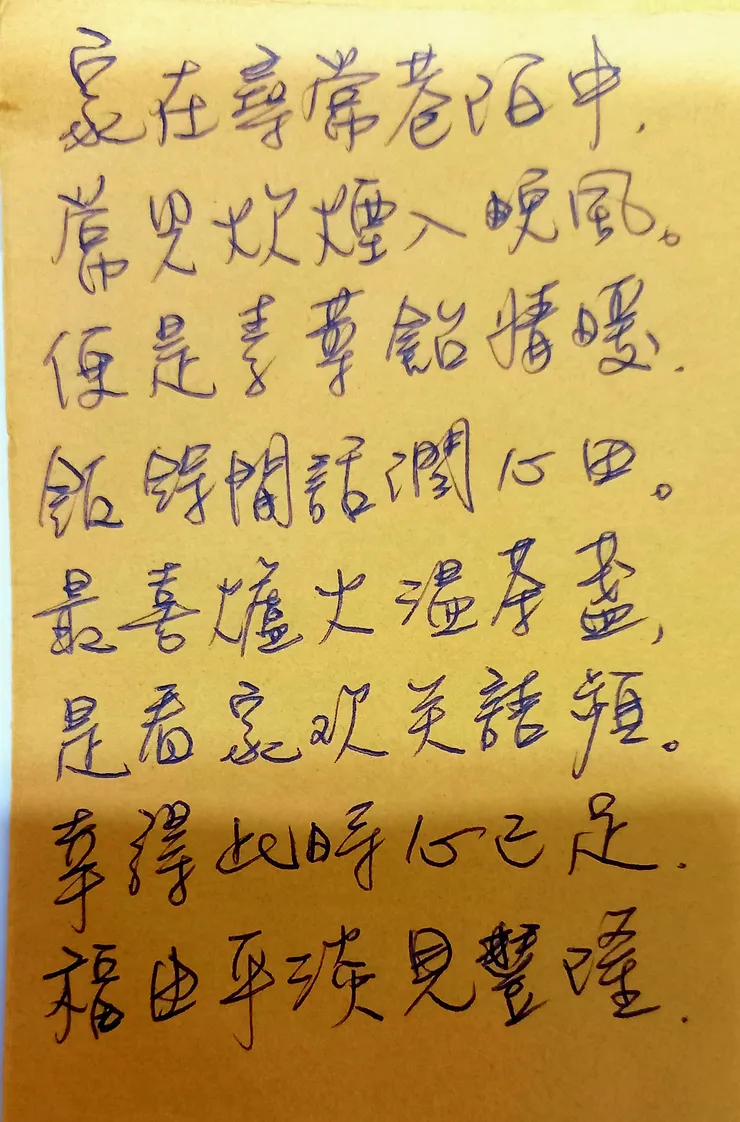 家在尋常巷陌中,
常見炊煙入晚風。
便是素尊飴情暖.
飯餘閒話潤心田。
最喜爐火溫茶盞,
是看家欢笑語頻。
幸得此時心已足.
福由平淡見豐隆.